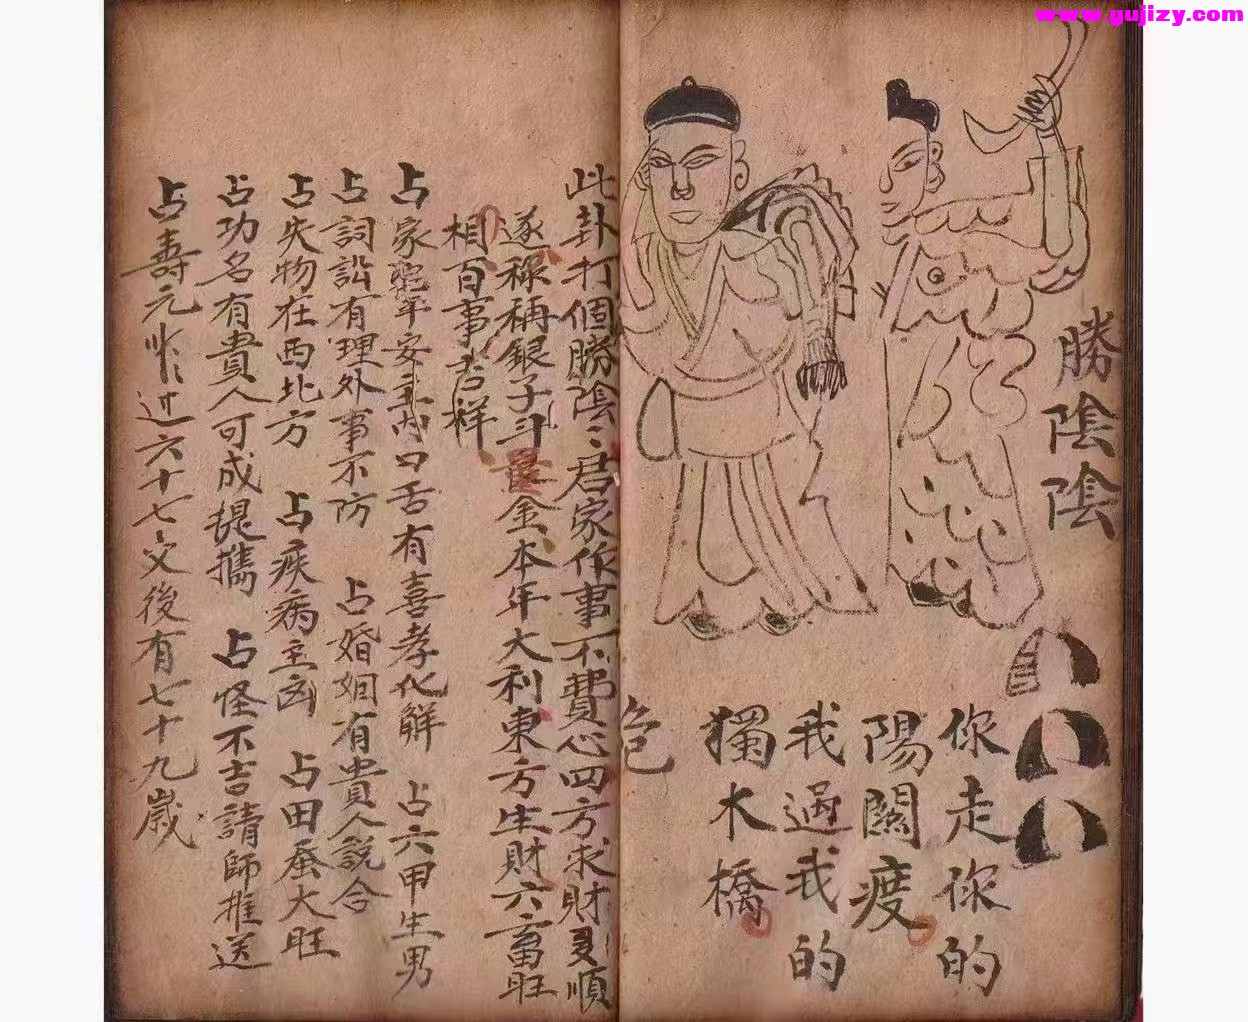 www.gujizy.com
勝陰陰
你走你的
陽關疲
我過我的
獨木橋
此卦打個勝陰〻君家作事不費心四方求財又順
遂秤稱銀子斗量金本年大利東方生財六畜旺
相百事吉祥
占家宅年安主內口舌有喜孝化解 占六甲生男
占詞訟有理外事不防 占婚姻有貴人說合
占失物在西北方 占疾病主凶 占田蚕大旺
占功名有貴人可成提攜 占怪不吉請師推送
占壽元過六十七父後有七十九歲